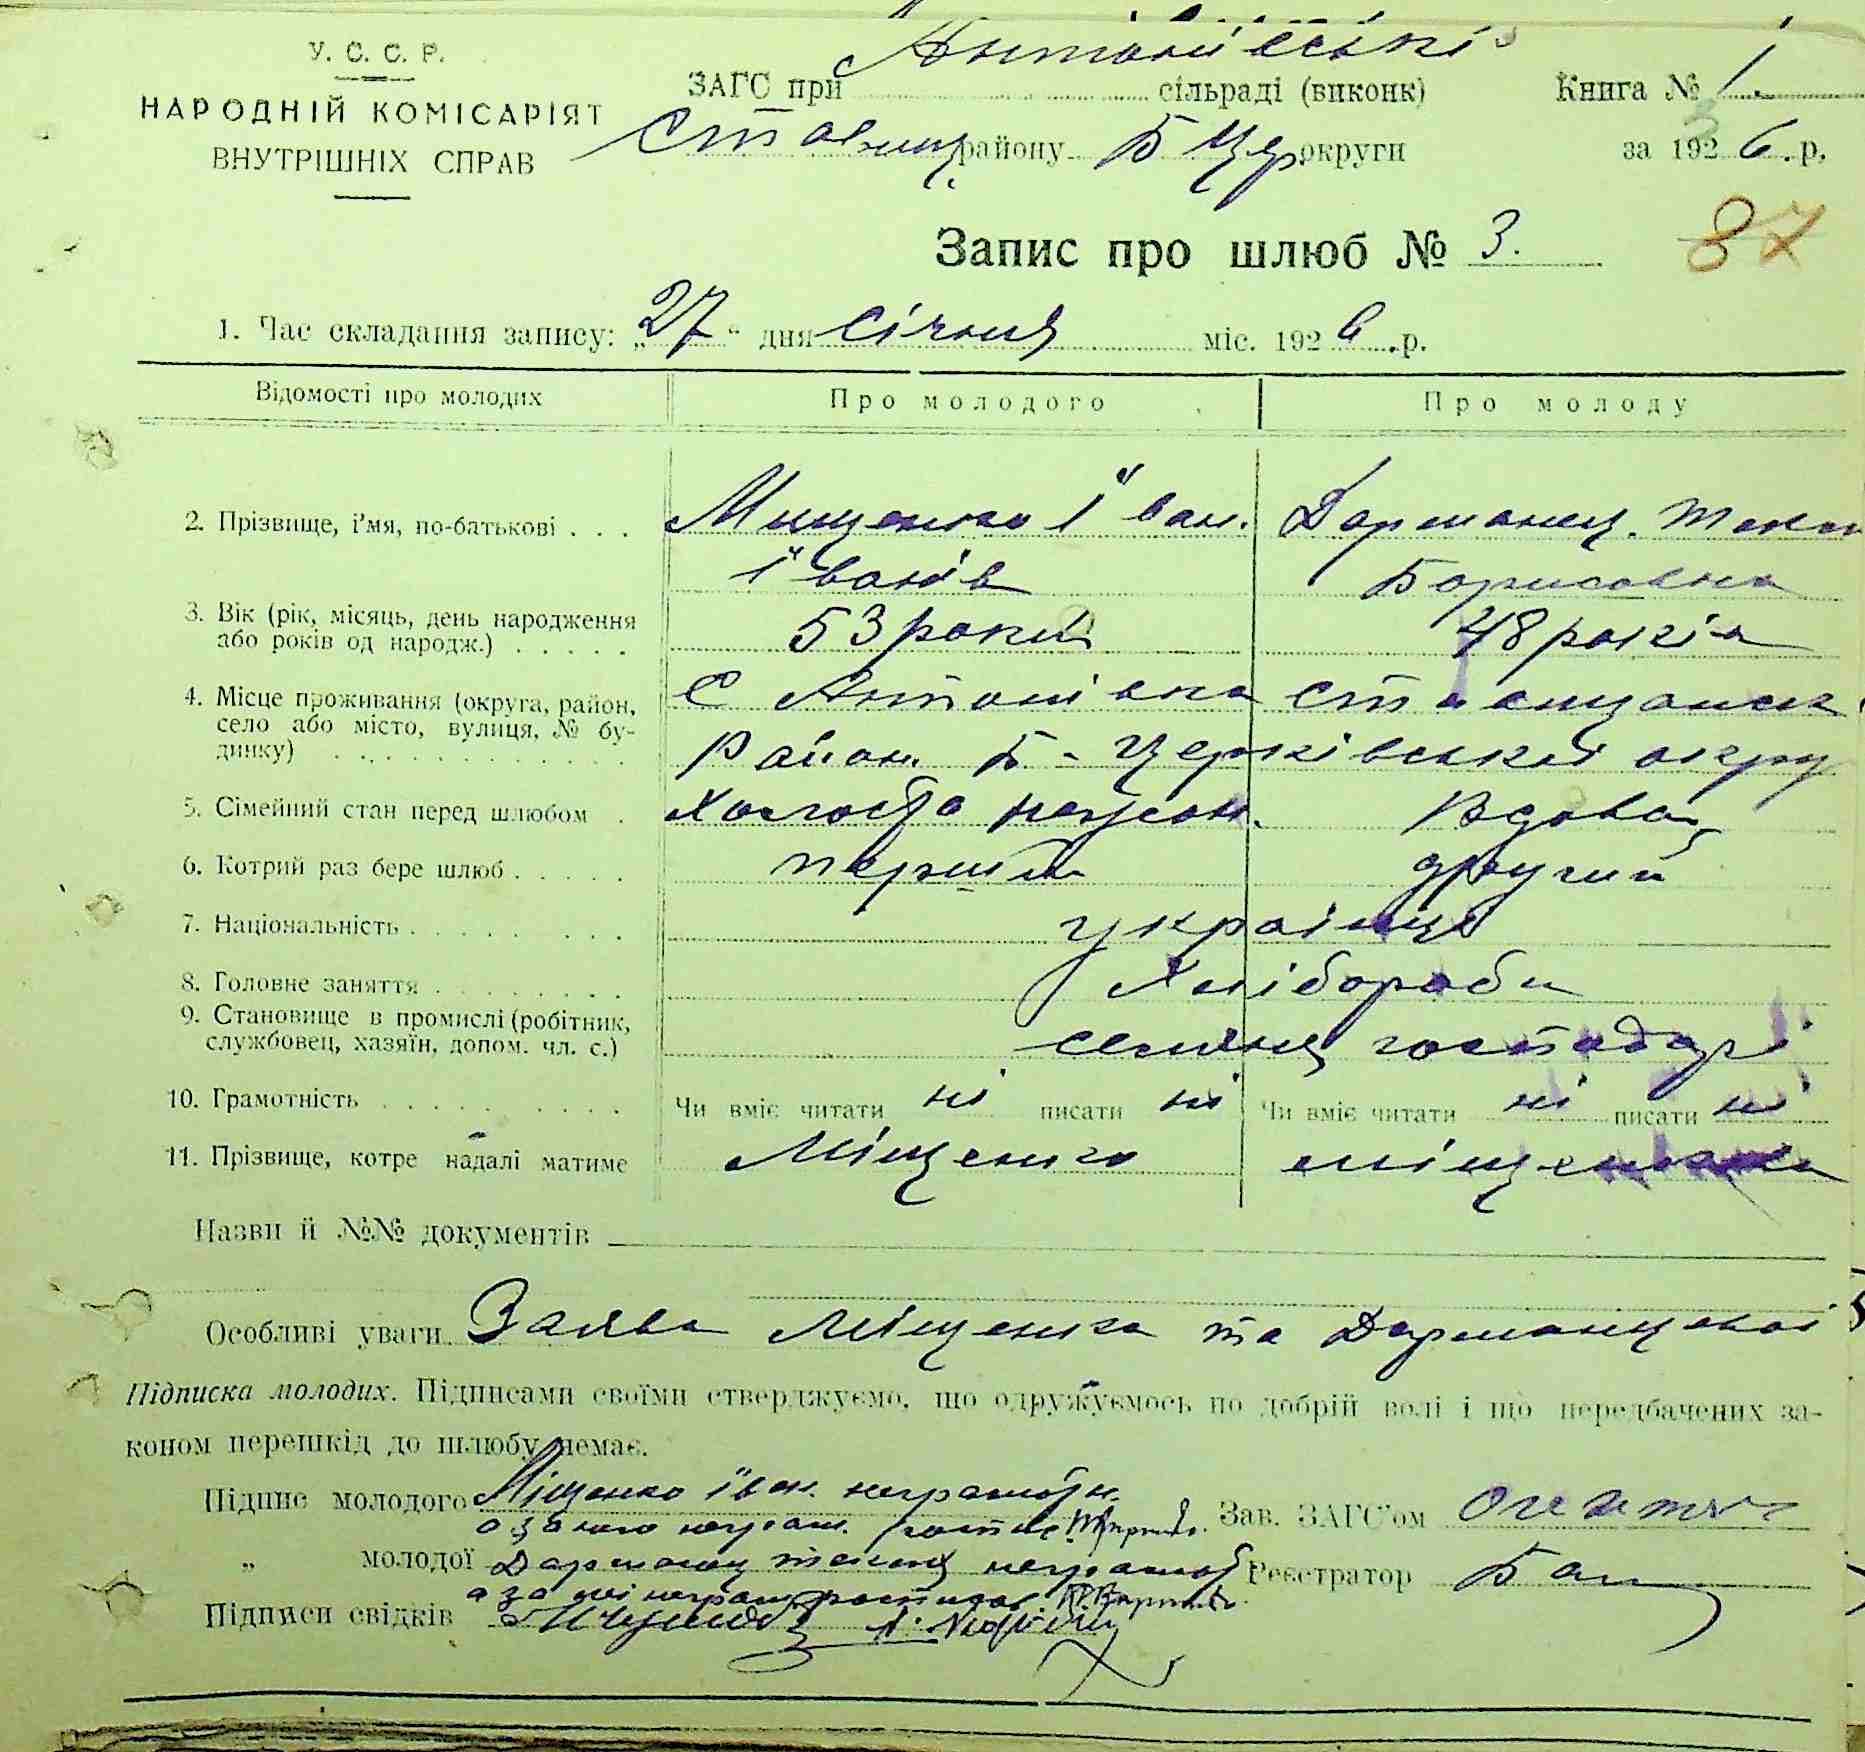 У. С. С. Р.
НАРОДНІЙ КОМІСАРІЯТ
ВНУТРІШНІХ СПРАВ
ЗАГС при Антонівські сільраді (виконк) Книга № 1.
району Б Цер округи за 192 6. р.
Запис про шлюб № 3. 87
1. Час складання запису: „27“ дня січня міс. 192 6 .р.
Відомості про молодих Про молодого Про молоду
2. Прізвище, і'мя, по-батькові . . . Мищенко Іван.
Іванів Борисовна
3. Вік (рік, місяць, день народження 53 роки 48 років
або років од народж.) . . . . .
4. Місце проживання (округа, район, С Антонівка
село або місто, вулиця, № бу- Район. Б - Церківської окру
динку) . . . . . . . . . . . .
5. Сімейний стан перед шлюбом . Вдова
6. Котрий раз бере шлюб . . . . . перший другий
7. Національність . . . . . . . . українці
8. Головне заняття . . . . . . . . Хлібороби
9. Становище в промислі (робітник,
службовец, хазяїн, допом. чл. с.) господарі
10. Грамотність . . . . . . . . . Чи вміє читати ні писати ні Чи вміє читати ні писати ні
11. Прізвище, котре надалі матиме Міщенко
Назви й №№ документів
Особливі уваги Заява Міщенка та
Підписка молодих. Підписами своїми стверджуємо, що одружуємось по добрій волі і що передбачених за-
коном перешкід до шлюбу немає.
Підпис молодого Міщенко Іван. Зав. ЗАГС'ом
„ молодої Реєстратор
Підписи свідків